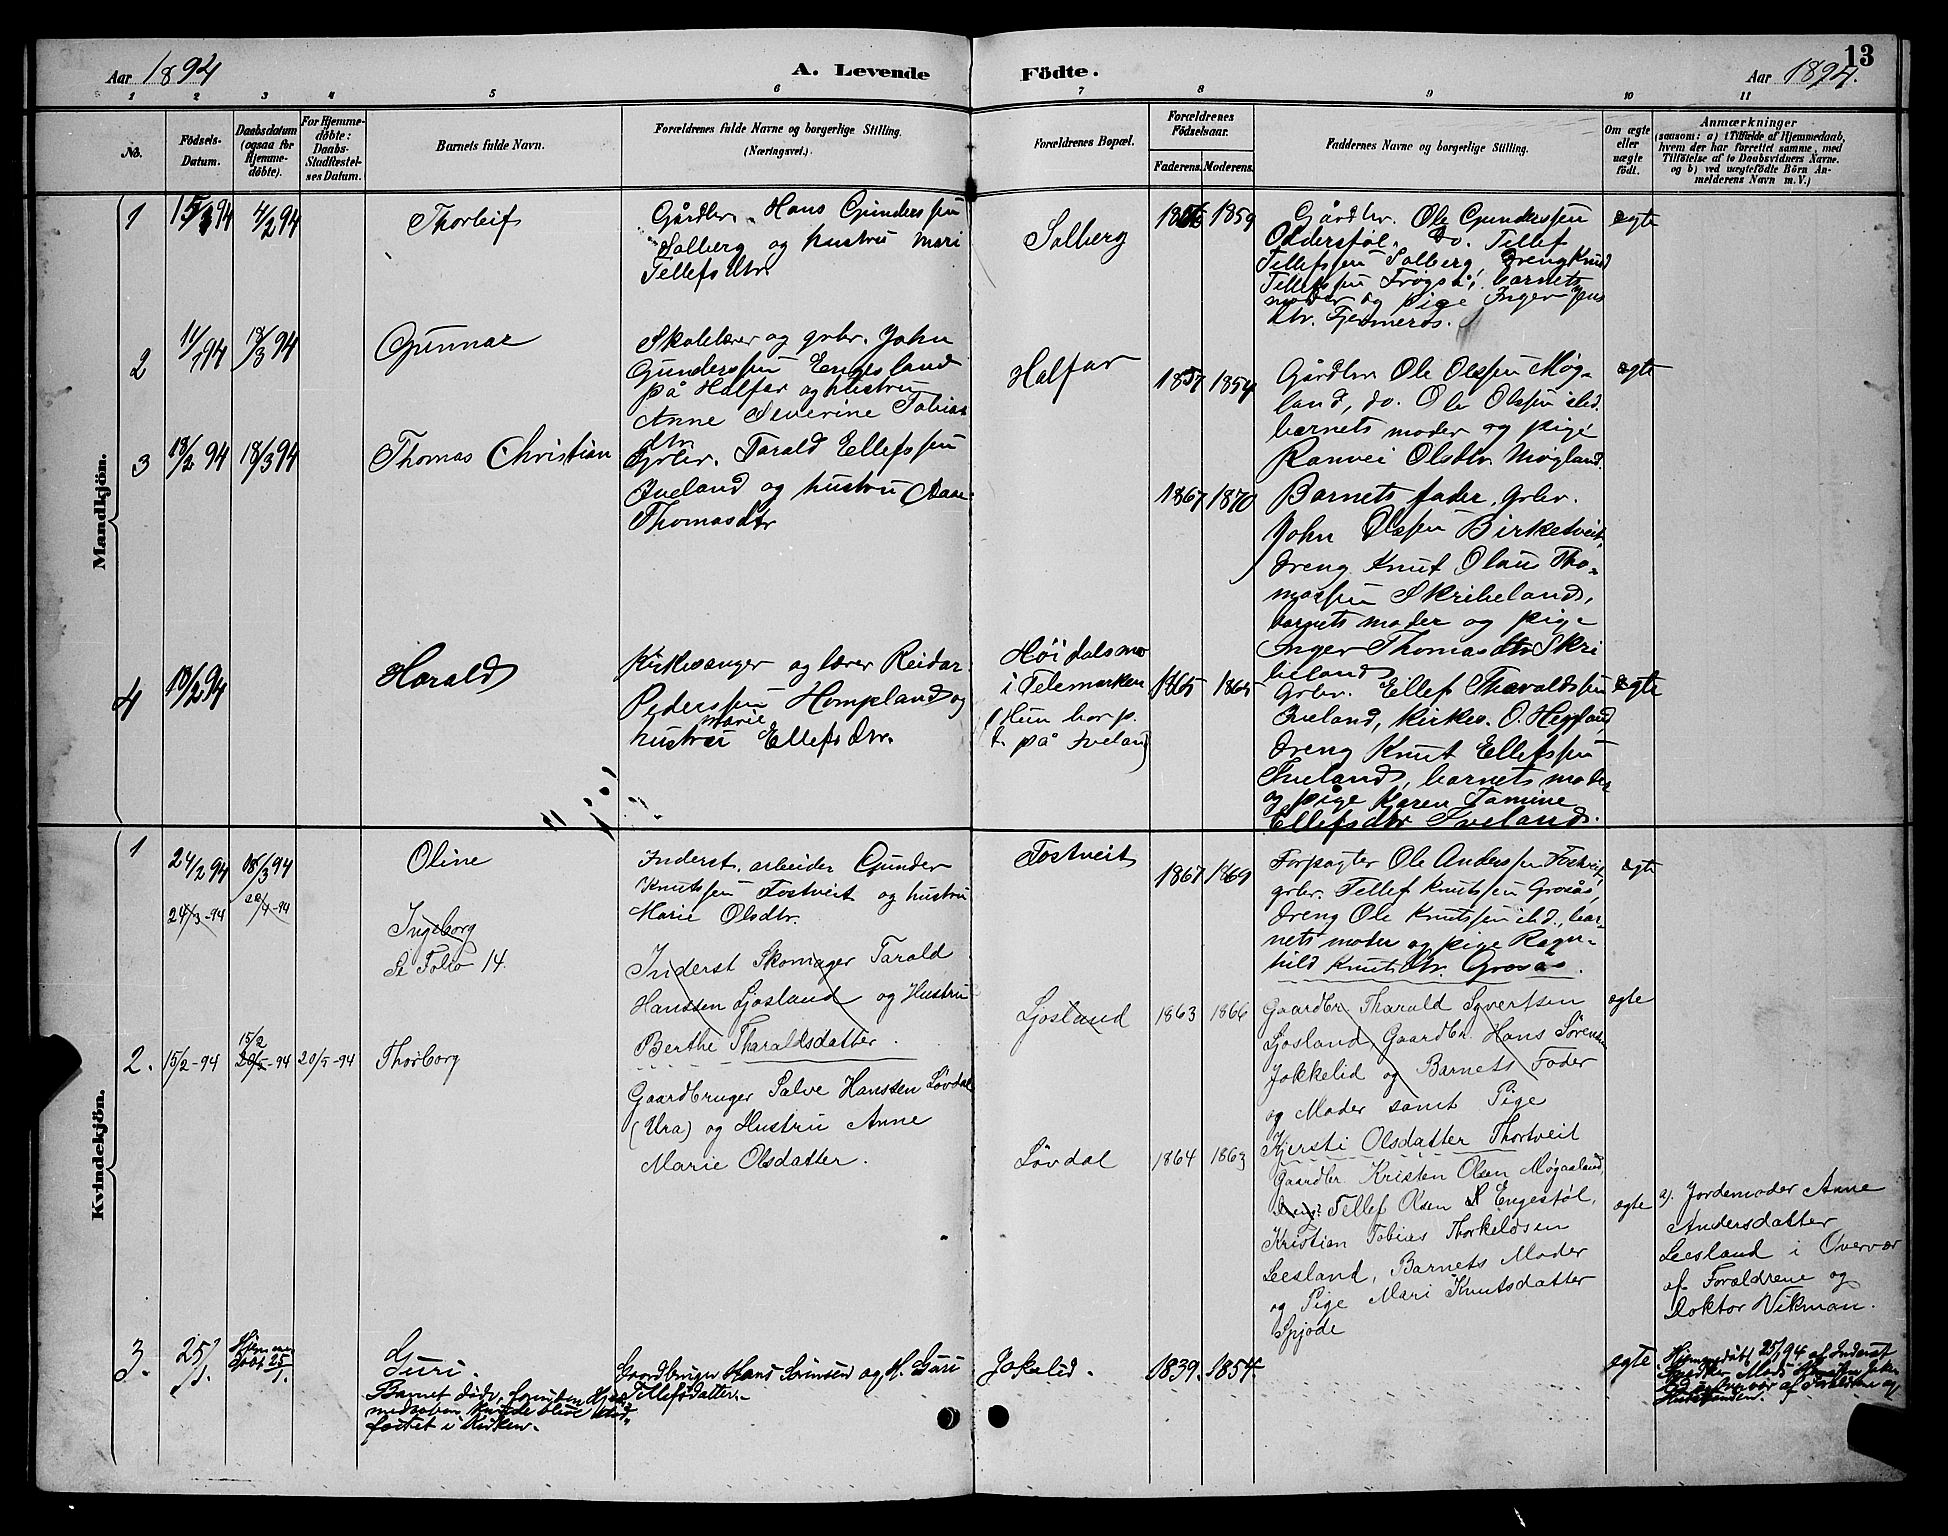 Aar 1894
A. Levende Födte.
Aar 1894.
13
1 2 3 4 5 6 7 8 9 10 11
No.
Fødsels-
Datum.
Daabsdatum
(ogsaa for
Hjemme-
døbte).
For Hjemme-
døbte:
Daabs-
Stadfæstel-
ses Datum.
Barnets fulde Navn.
Forældrenes fulde Navne og borgerlige Stilling.
(Næringsvei.)
Forældrenes Bopæl.
Forældrenes
Födselsaar.
Faderens. Moderens.
Faddernes Navne og borgerlige Stilling.
Om ægte
eller
uægte
født.
Anmærkninger
(saasom: a) i Tilfælde af Hjemmedaab,
hvem der har forrettet samme, med
Tilföielse af to Daabsvidners Navne.
og b) ved uægtefödte Börn An-
melderens Navn m. V.)
Mandkjön.
1 15/1 94 4/2 94 Thorleif
Gårdbr. Hans Gunderssen
Solberg og hustru Mari
Tellefsdtr.
Solberg
1859
Gårdbr. Ole Gunderssen
Oddersføl. Do. Tellef
Tellefssen Solberg, dreng Knud
Tellefssen Frøgså, barnets
moder og pige Inger Jens
dtr.
ægte
2 11/1 94 18/3 94 Gunnar
Skolelærer og grbr. John
Gunderssen Engesland
på Halfar og hustru
Anne Severine Tobias
dtr.
Halfar
1857 1854
Gårdbr. Ole Olssen Møg-
land, do. Ole Olssen ibd.
barnets moder og pige
Ranvei Olsdtr. Møgland.
ægte
3 18/2 94 18/3 94 Thomas Christian
Grbr. Tarald Ellefssen
Iveland og hustru Aase
Thomasdtr
1867 1870
Barnets fader, Grbr.
John Olssen Birketveit,
dreng Knut Olaus Tho-
massen Skribeland,
barnets moder og pige
Inger Thomasdtr Skri
beland
4 18/2 94 Harald
Kirkesanger og lærer Reidar
Pederssen Hompland og
hustru Marie Ellefsdtr.
Høidalsmo
i Telemarken
(Hun bor p.
t. på Iveland)
1865 1865
Grbr. Ellef Tharaldssen
Iveland, kirkes. O. Hegland,
dreng Knut Ellefssen
Iveland, barnets moder
og pige Karen Tomine
Ellefsdtr Iveland.
ægte
Kvindekjön.
1 24/2 94 18/3 94 Oline
Inderst, arbeider Gunder
Knutssen Tostveit og hustru
Marie Olsdtr.
Tostveit
1867 1869
Forpagter Ole Anderssen Tostveit,
grbr. Tellef Knutssen Grosås,
dreng Ole Knutssen ibd., bar-
nets moder og pige Ragn-
hild Knutsdtr. Grosås.
ægte
24/3-94 20/4-94 Ingeborg
Se Folio 14.
Inderst Skomager Tarald
Hanssen Ljosland og Hustru
Berthe Tharaldsdatter.
Ljosland
1863 1866
Gaardbr. Tharald Syvertsen
Ljosland, Gaardbr. Hans Sörensen
Jokkelid og Barnets Fader
og Moder samt Pige
Kjersti Olsdatter Thortveit
ægte
2. 15/2-94 15/2 20/5-94 20/5-94 Thorborg
Gaardbruger Salve Hanssen Lövdal
(Ura) og Hustru Anne
Marie Olsdatter.
Lövdal
1864 1863
Gaardbr. Kristen Olsen Møgaaland,
Tellef Olsen Engestøl,
Kristian Tobias Thorkeldsen
Leesland, Barnets Moder
og Pige Mari Knutsdatter
Spjode
ægte
a). Jordemoder Anne
Andersdatter
Leesland i Overvær
af Forældrene og
Doktor Vikman.
3. 25/1
Hjemme
døbt 25/1.
Guri.
Barnet døde,
fæstet i Kirken.
Gaardbruger Hans Sörensen og H. Guri
Tellefsdatter.
Jokelid.
1839. 1854.
ægte
Hjemmedøbt 25/1 94 af Inderst